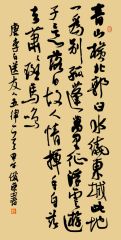 青山横北郭白水遶東城此地
一為別孤蓬萬里征浮雲遊
子意落日故人情揮手自茲
去蕭蕭班馬鳴
唐李白送友人五律一首